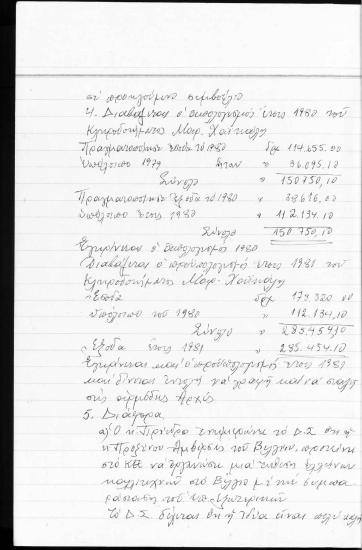 4. Διαβάζεται ο απολογισμός έτους 1980 του
Κληροδοτήματος Μαρ. Χαϊκάλη
Πραγματοποιηθέντα έσοδα το 1980 δρχ 114.655.00
Υπόλοιπο 1979 " 36.095.10
Σύνολο " 150750,10
Πραγματοποιηθέντα έξοδα το 1980 " 38616,00
Υπόλοιπο έτους 1980 " 112.134.10
Σύνολο " 150 750,10
Εγκρίνεται ο απολογισμός 1980
Διαβάζεται ο προϋπολογισμός έτους 1981 του
Κληροδοτήματος Μαρ. Χαϊκάλη
Έσοδα δρχ 173.320 00
Υπόλοιπο του 1980 " 112.134,10
Σύνολο " 285.454,10
Έξοδα έτους 1981 " 285.454.10
Εγκρίνεται και ο προϋπολογισμός έτους 1981
και δίνεται εντολή να γραφή και να σταλή
στις αρμόδιες Αρχές
5. Διάφορα
α) Ο κ. Πρόεδρος ενημερώνει το Δ.Σ. ότι η
κ. Πρόξενος Αμβέρσης του Βελγίου, προτείνει
στο ΚΘ να οργανώση μια έκθεση Ελλήνων
καλλιτεχνών στο Βέλγιο με την συμπα-
ράσταση του Υπ. Εξωτερικών
Το Δ.Σ. δέχεται ότι η ιδέα είναι πολύ καλή